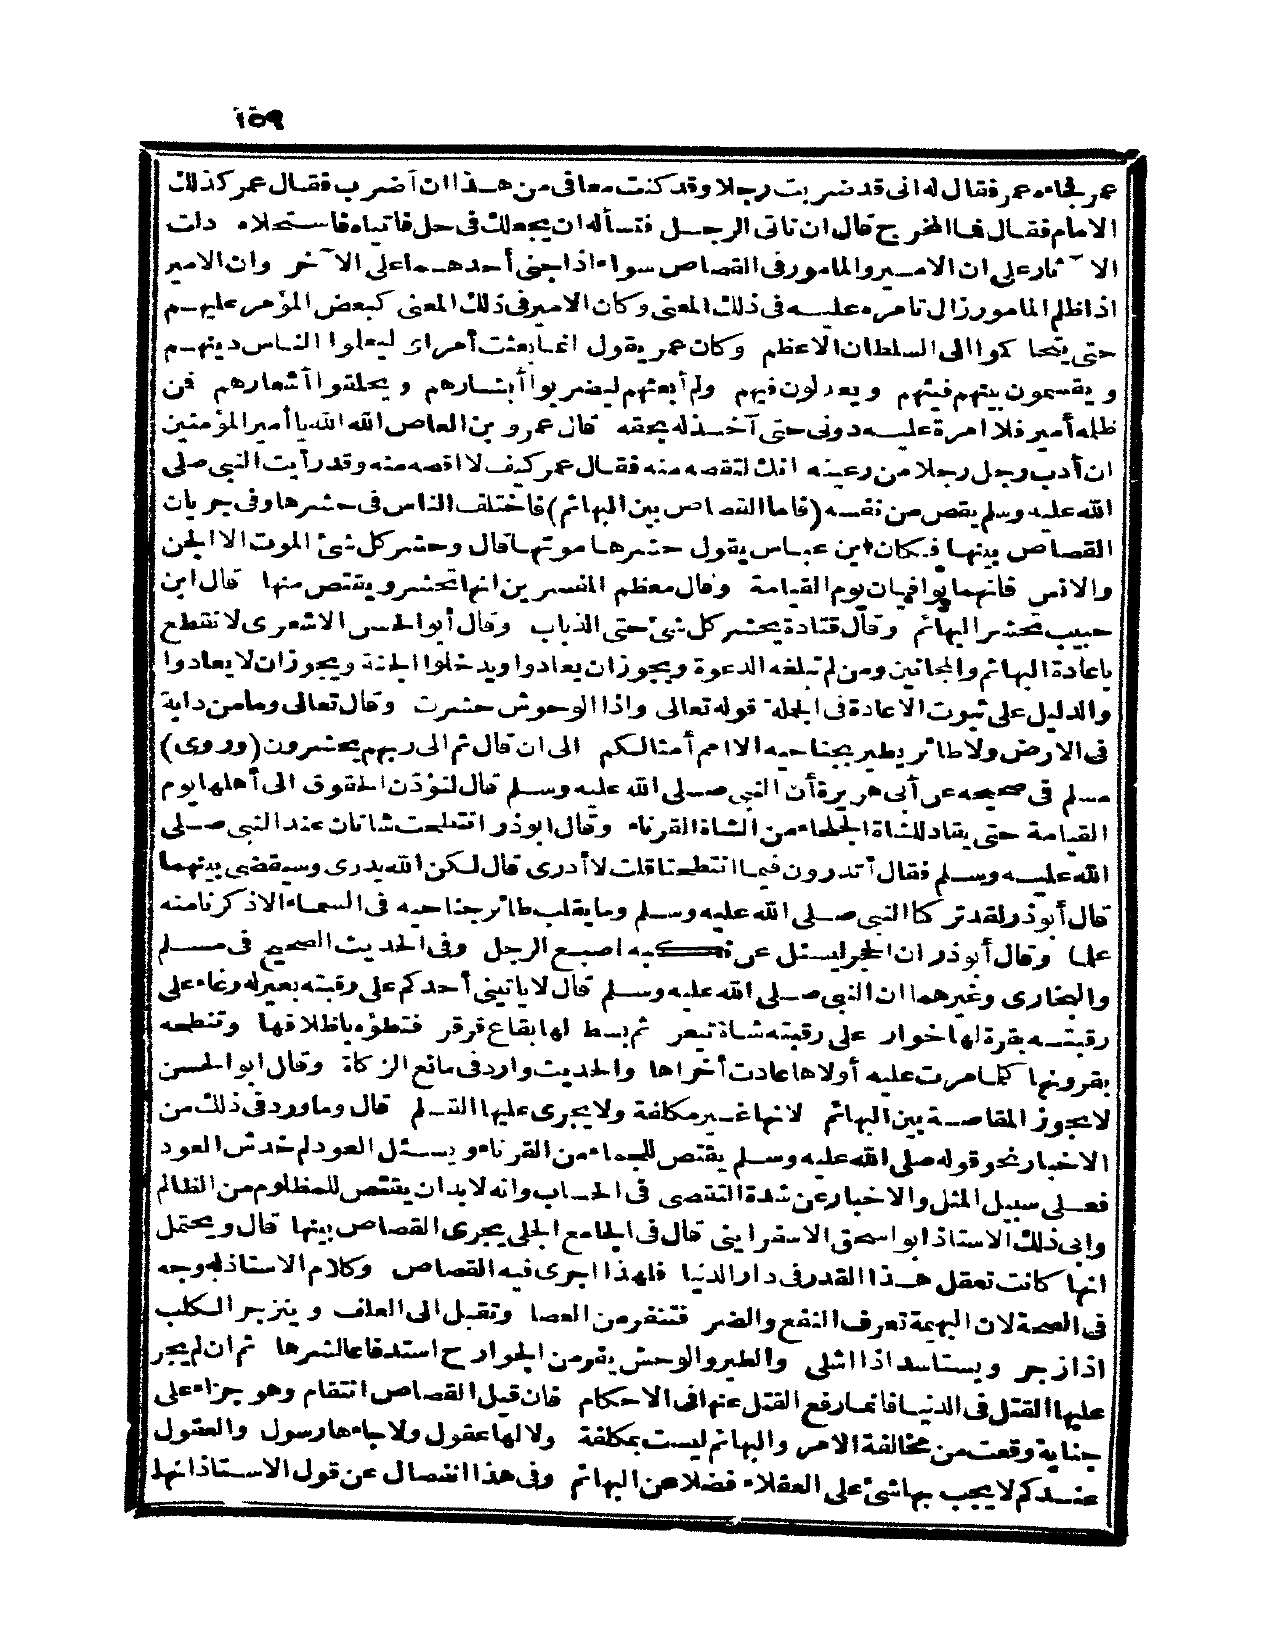 ١٥٩
عمر فجاءه عمر فقال له انى قد ضربت رجلا وقد كنت معافى من هذا ان أضرب فقال عمر كذلك
الامام فقال فما المخرج قال ان تاتى الرجل فتسأله ان يجعلك فى حل فاتياه فاستحلاه دلت
الا ثار على ان الامير والمامور فى القصاص سواء اذا جنى أحدهما على الآخر وان الامير
اذا ظلم المامور زال تامره عليه فى ذلك المعنى وكان الامير فى ذلك المعنى كبعض المؤمر عليهم
حتى يتحا كموا الى السلطان الاعظم وكان عمر يقول انما بعثت أمراى ليعلموا الناس دينهم
و يقسمون بينهم فيئهم و يعدلون فيهم ولم أبعثهم ليضربوا أبشارهم و يحلقوا أشعارهم فمن
ظلمه أمير فلا امرة عليه دونى حتى آخذ له بحقه قال عمرو بن العاص الله الله يا أمير المؤمنين
ان أدب رجل رجلا من رعيته انك لتقصه منه فقال عمر كيف لا اقصه منه وقد رأيت النبى صلى
الله عليه وسلم يقص من نفسه (فاما القصاص بين البهائم) فاختلف الناس فى حشرها وفى جريان
القصاص بينها فكان ابن عباس يقول حشرها موتها قال وحشر كل شئ الموت الا الجن
والانس فانهما يوافيان يوم القيامة وقال معظم المفسرين انها تحشر و يقتص منها قال ابن
حبيب تحشر البهائم وقال قتادة يحشر كل شئ حتى الذباب وقال أبو الحسن الاشعرى لا نقطع
باعادة البهائم والمجانين ومن لم تبلغه الدعوة ويجوز ان يعادوا ويدخلوا الجنة ويجوز ان لا يعادوا
والدليل على ثبوت الاعادة فى الجملة قوله تعالى واذا الوحوش حشرت وقال تعالى وما من دابة
فى الارض ولا طائر يطير بجناحيه الا امم أمثالكم الى ان قال ثم الى ربهم يحشرون (وروى)
مسلم فى صحيحه عن أبى هريرة أن النبى صلى الله عليه وسلم قال لتؤدن الحقوق الى أهلها يوم
القيامة حتى يقاد للشاة الجلحاء من الشاة القرناء وقال ابو ذر انتطحت شاتان عند النبى صلى
الله عليه وسلم فقال أتدرون فيما انتطحتا قلت لا أدرى قال لكن الله يدرى وسيقضى بينهما
قال أبو ذر لقد تركنا النبى صلى الله عليه وسلم وما يقلب طائر جناحيه فى السماء الا ذكرنا منه
علما وقال أبو ذر ان الحجر ليسئل عن نكبه اصبع الرجل وفى الحديث الصحيح فى مسلم
والبخارى وغيرهما ان النبى صلى الله عليه وسلم قال لا ياتينى أحدكم على رقبته بعير له رغاء على
رقبته بقرة لها خوار على رقبته شاة تيعر ثم بسط لها بقاع قرقر فتطؤه باظلافها وتنطحه
بقرونها كلما مرت عليه أولاها عادت أخراها والحديث وارد فى مانع الزكاة وقال ابو الحسن
لا يجوز المقاصة بين البهائم لانها غير مكلفة ولا يجرى عليها القلم قال وما ورد فى ذلك من
الاخبار نحو قوله صلى الله عليه وسلم يقتص للجماء من القرناء و يسئل العود لم خدش العود
فعلى سبيل المثل والاخبار عن شدة التقصى فى الحساب وانه لا بد ان يقتص للمظلوم من الظالم
وابى ذلك الاستاذ ابو اسحق الاسفراينى قال فى الجامع الجلى يجرى القصاص بينها قال ويحتمل
انها كانت تعقل هذا القدر فى دار الدنيا فلهذا اجرى فيه القصاص وكلام الاستاذ له وجه
فى الصحة لان البهيمة تعرف النفع والضر فتنفر من العصا وتقبل الى العلف و ينزجر الكلب
اذا زجر و يستاسد اذا اشلى والطير والوحش يفر من الجوارح استدفاعا لشرها ثم ان لم يجر
عليها القتل فى الدنيا فانما رفع القتل عنها فى الاحكام فان قيل القصاص انتقام وهو جزاء على
جناية وقعت من مخالفة الامر والبهائم ليست بمكلفة ولا لها عقول ولا جاءها رسول والعقول
عندكم لا يجب بها شئ على العقلاء فضلا عن البهائم وفى هذا انفصال عن قول الاستاذ انها